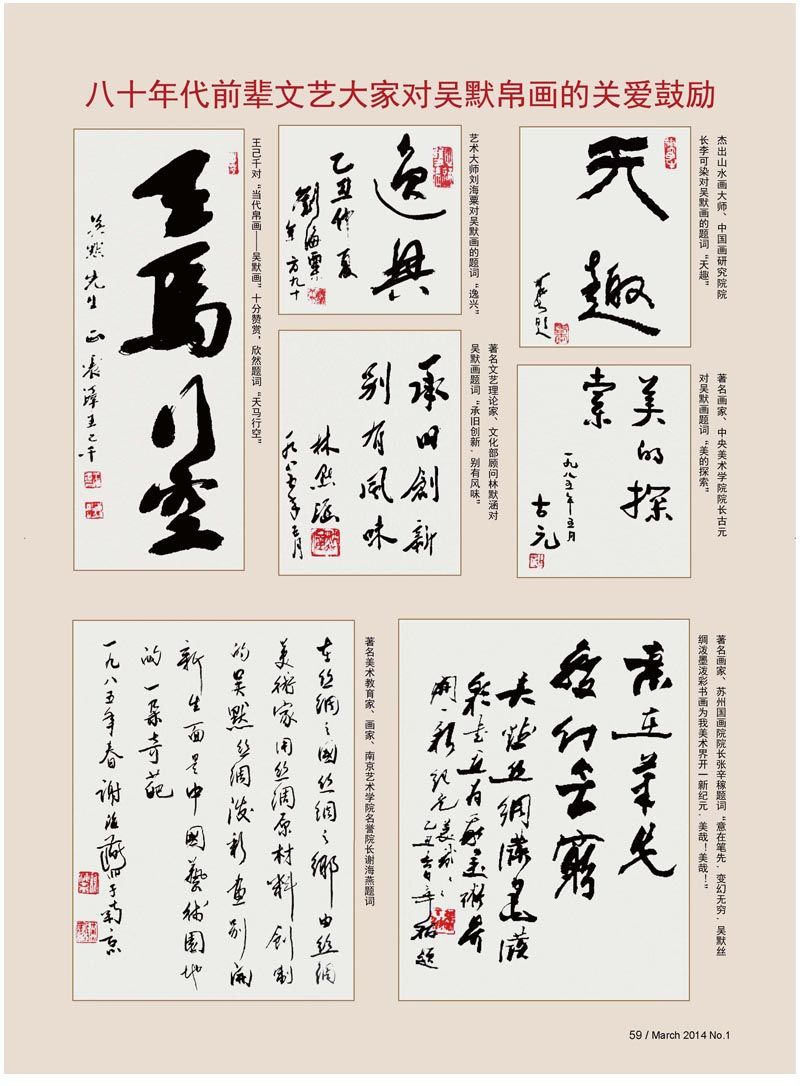 八十年代前辈文艺大家对吴默帛画的关爱鼓励
天趣
可染題
杰出山水画大师、中国画研究院院
长李可染对吴默画的题词“天趣”
逸興
乙丑仲夏
劉海粟
年方九十
艺术大师刘海粟对吴默画的题词“逸兴”
天馬行空
默先生正
王己千
王己千对“当代帛画——吴默画”十分赞赏，欣然题词“天马行空”
美的探
索
一九八五年五月
古元
著名画家、中央美术学院院长古元
对吴默画题词“美的探索”
承旧創新
别有風味
林默涵
一九八五年五月
著名文艺理论家、文化部顾问林默涵对
吴默画题词“承旧创新，别有风味”
意在筆先
變幻無窮
吳默丝綢潑墨潑
彩書画為我美術界
開一新紀元美哉
著名画家、苏州国画院院长张辛稼题词“意在笔先，变幻无穷，吴默丝
绸泼墨泼彩书画为我美术界开一新纪元，美哉！美哉！”
在丝綢之國丝綢之鄉由丝綢
美術家用丝綢原材料創制
的吴默丝綢潑彩画别開
新生面是中國藝術園地
的一朵奇葩
一九八五年春謝海燕於南京
著名美术教育家、画家、南京艺术学院名誉院长谢海燕题词
59 / March 2014 No.1